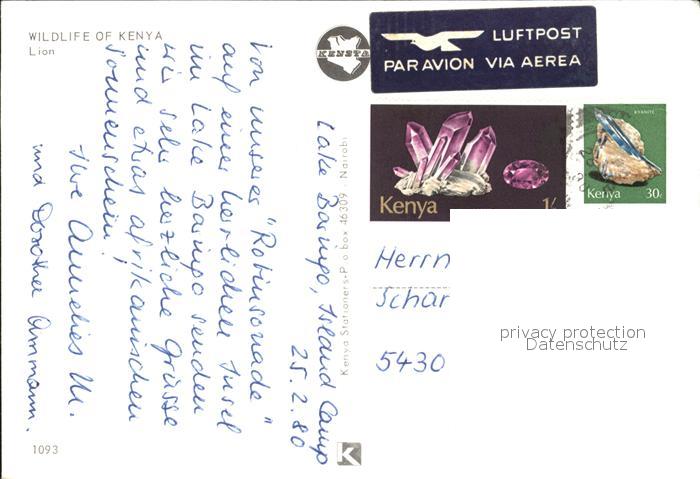 WILDLIFE OF KENYA
Lion
Lake Baringo, Island Camp
25.2.80
Von unserer "Robinsonade"
auf einer herrlichen Insel
im Lake Baringo senden
wir sehr herzliche Grüsse
und etwas afrikanischen
Sonnenschein!
Ihre Annelies M.
und Dorothea Ammann.
1093
KENSTA
Kenya Stationers-P o box 46309, Nairobi
K
LUFTPOST
PAR AVION VIA AEREA
Kenya 1/-
KYANITE
Kenya 30/-
Herrn
Schär
5430
privacy protection
Datenschutz